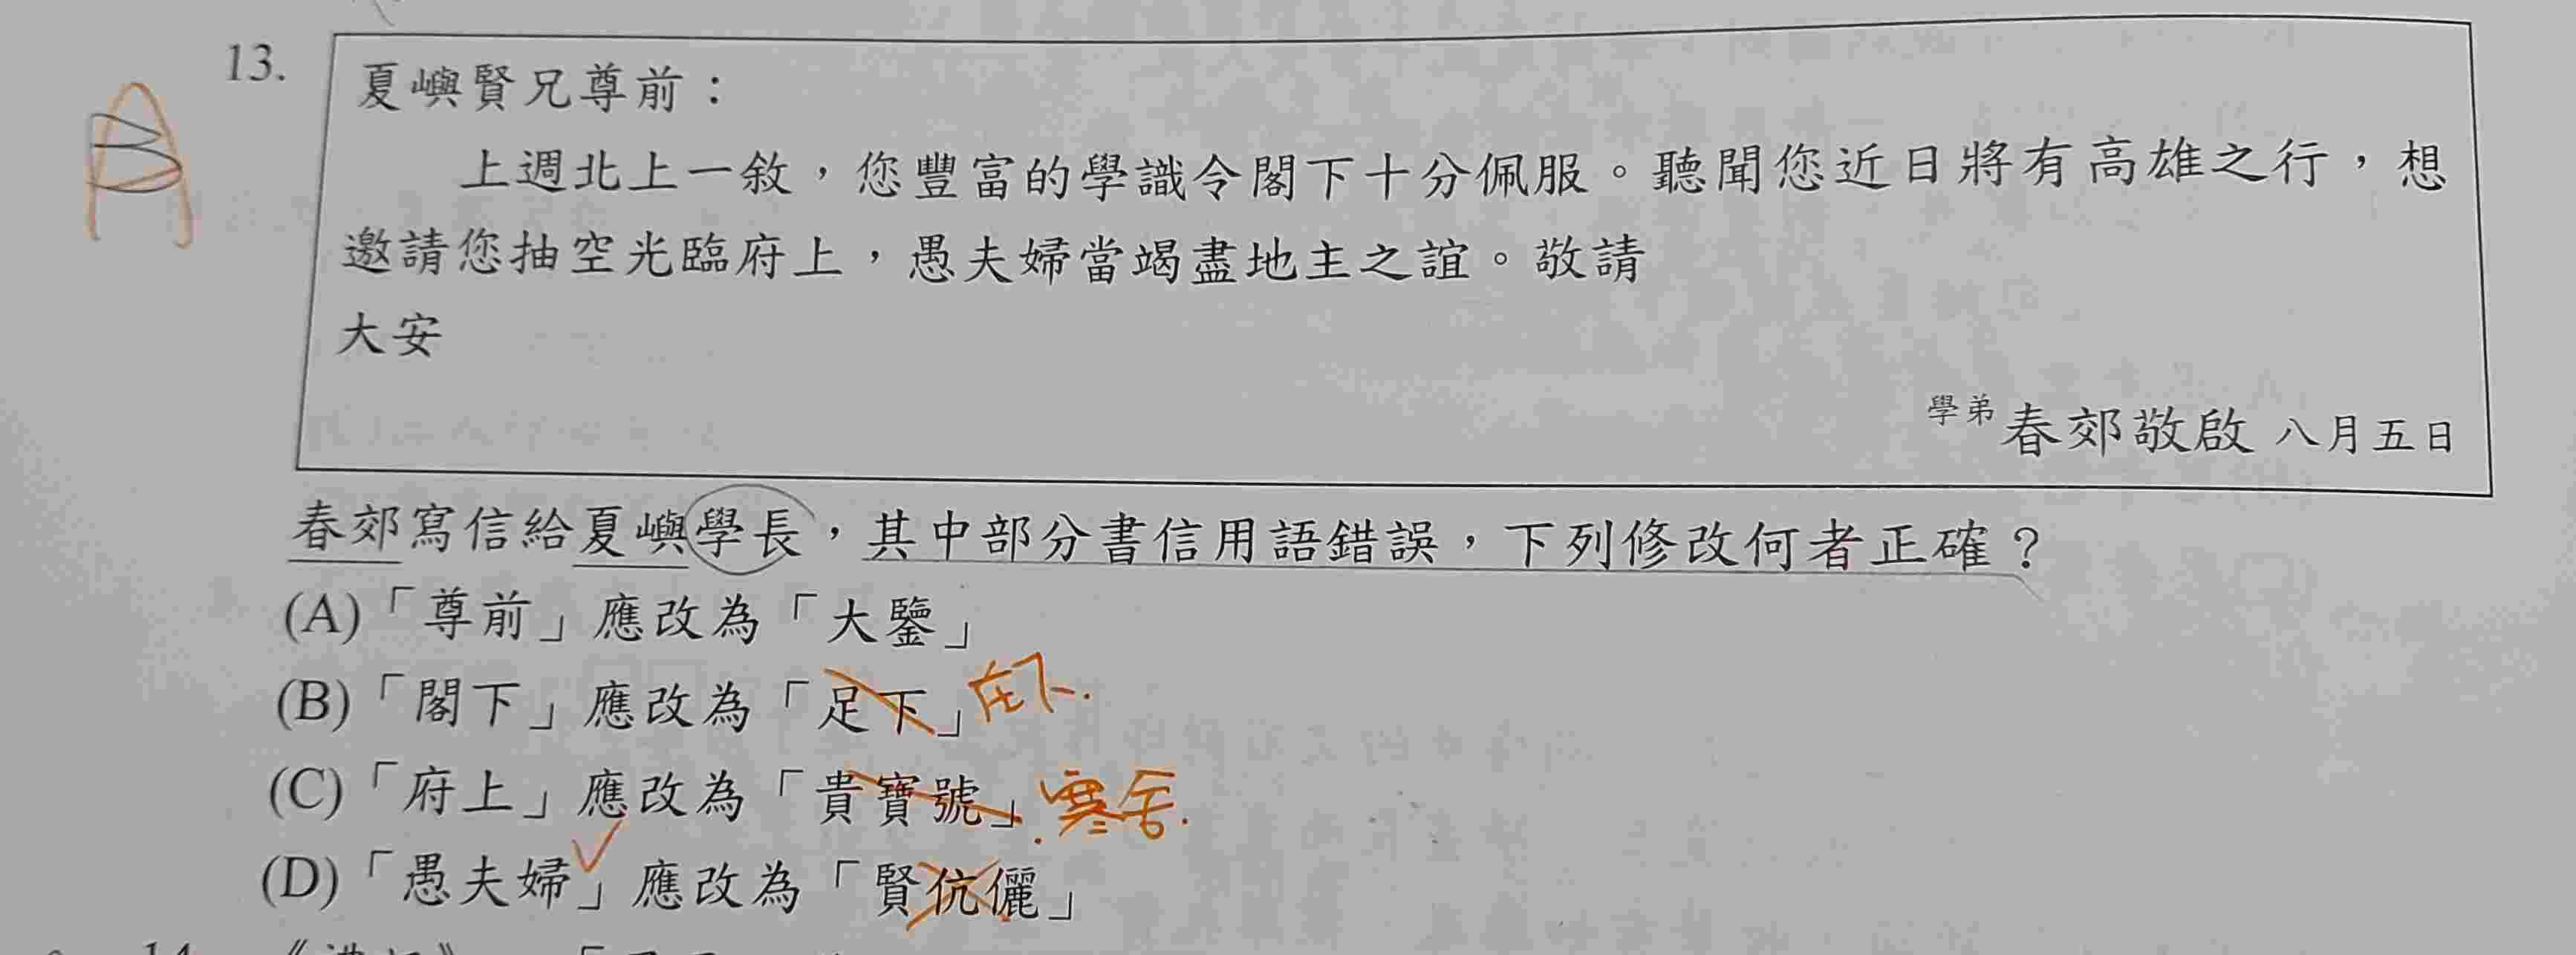 13.
夏嶼賢兄尊前：
上週北上一敘，您豐富的學識令閣下十分佩服。聽聞您近日將有高雄之行，想
邀請您抽空光臨府上，愚夫婦當竭盡地主之誼。敬請
大安
學弟 春郊敬啟 八月五日
A
B
春郊寫信給夏嶼學長，其中部分書信用語錯誤，下列修改何者正確？
(A)「尊前」應改為「大鑒」
(B)「閣下」應改為「足下」在下.
(C)「府上」應改為「貴寶號」寒舍.
(D)「愚夫婦」應改為「賢伉儷」